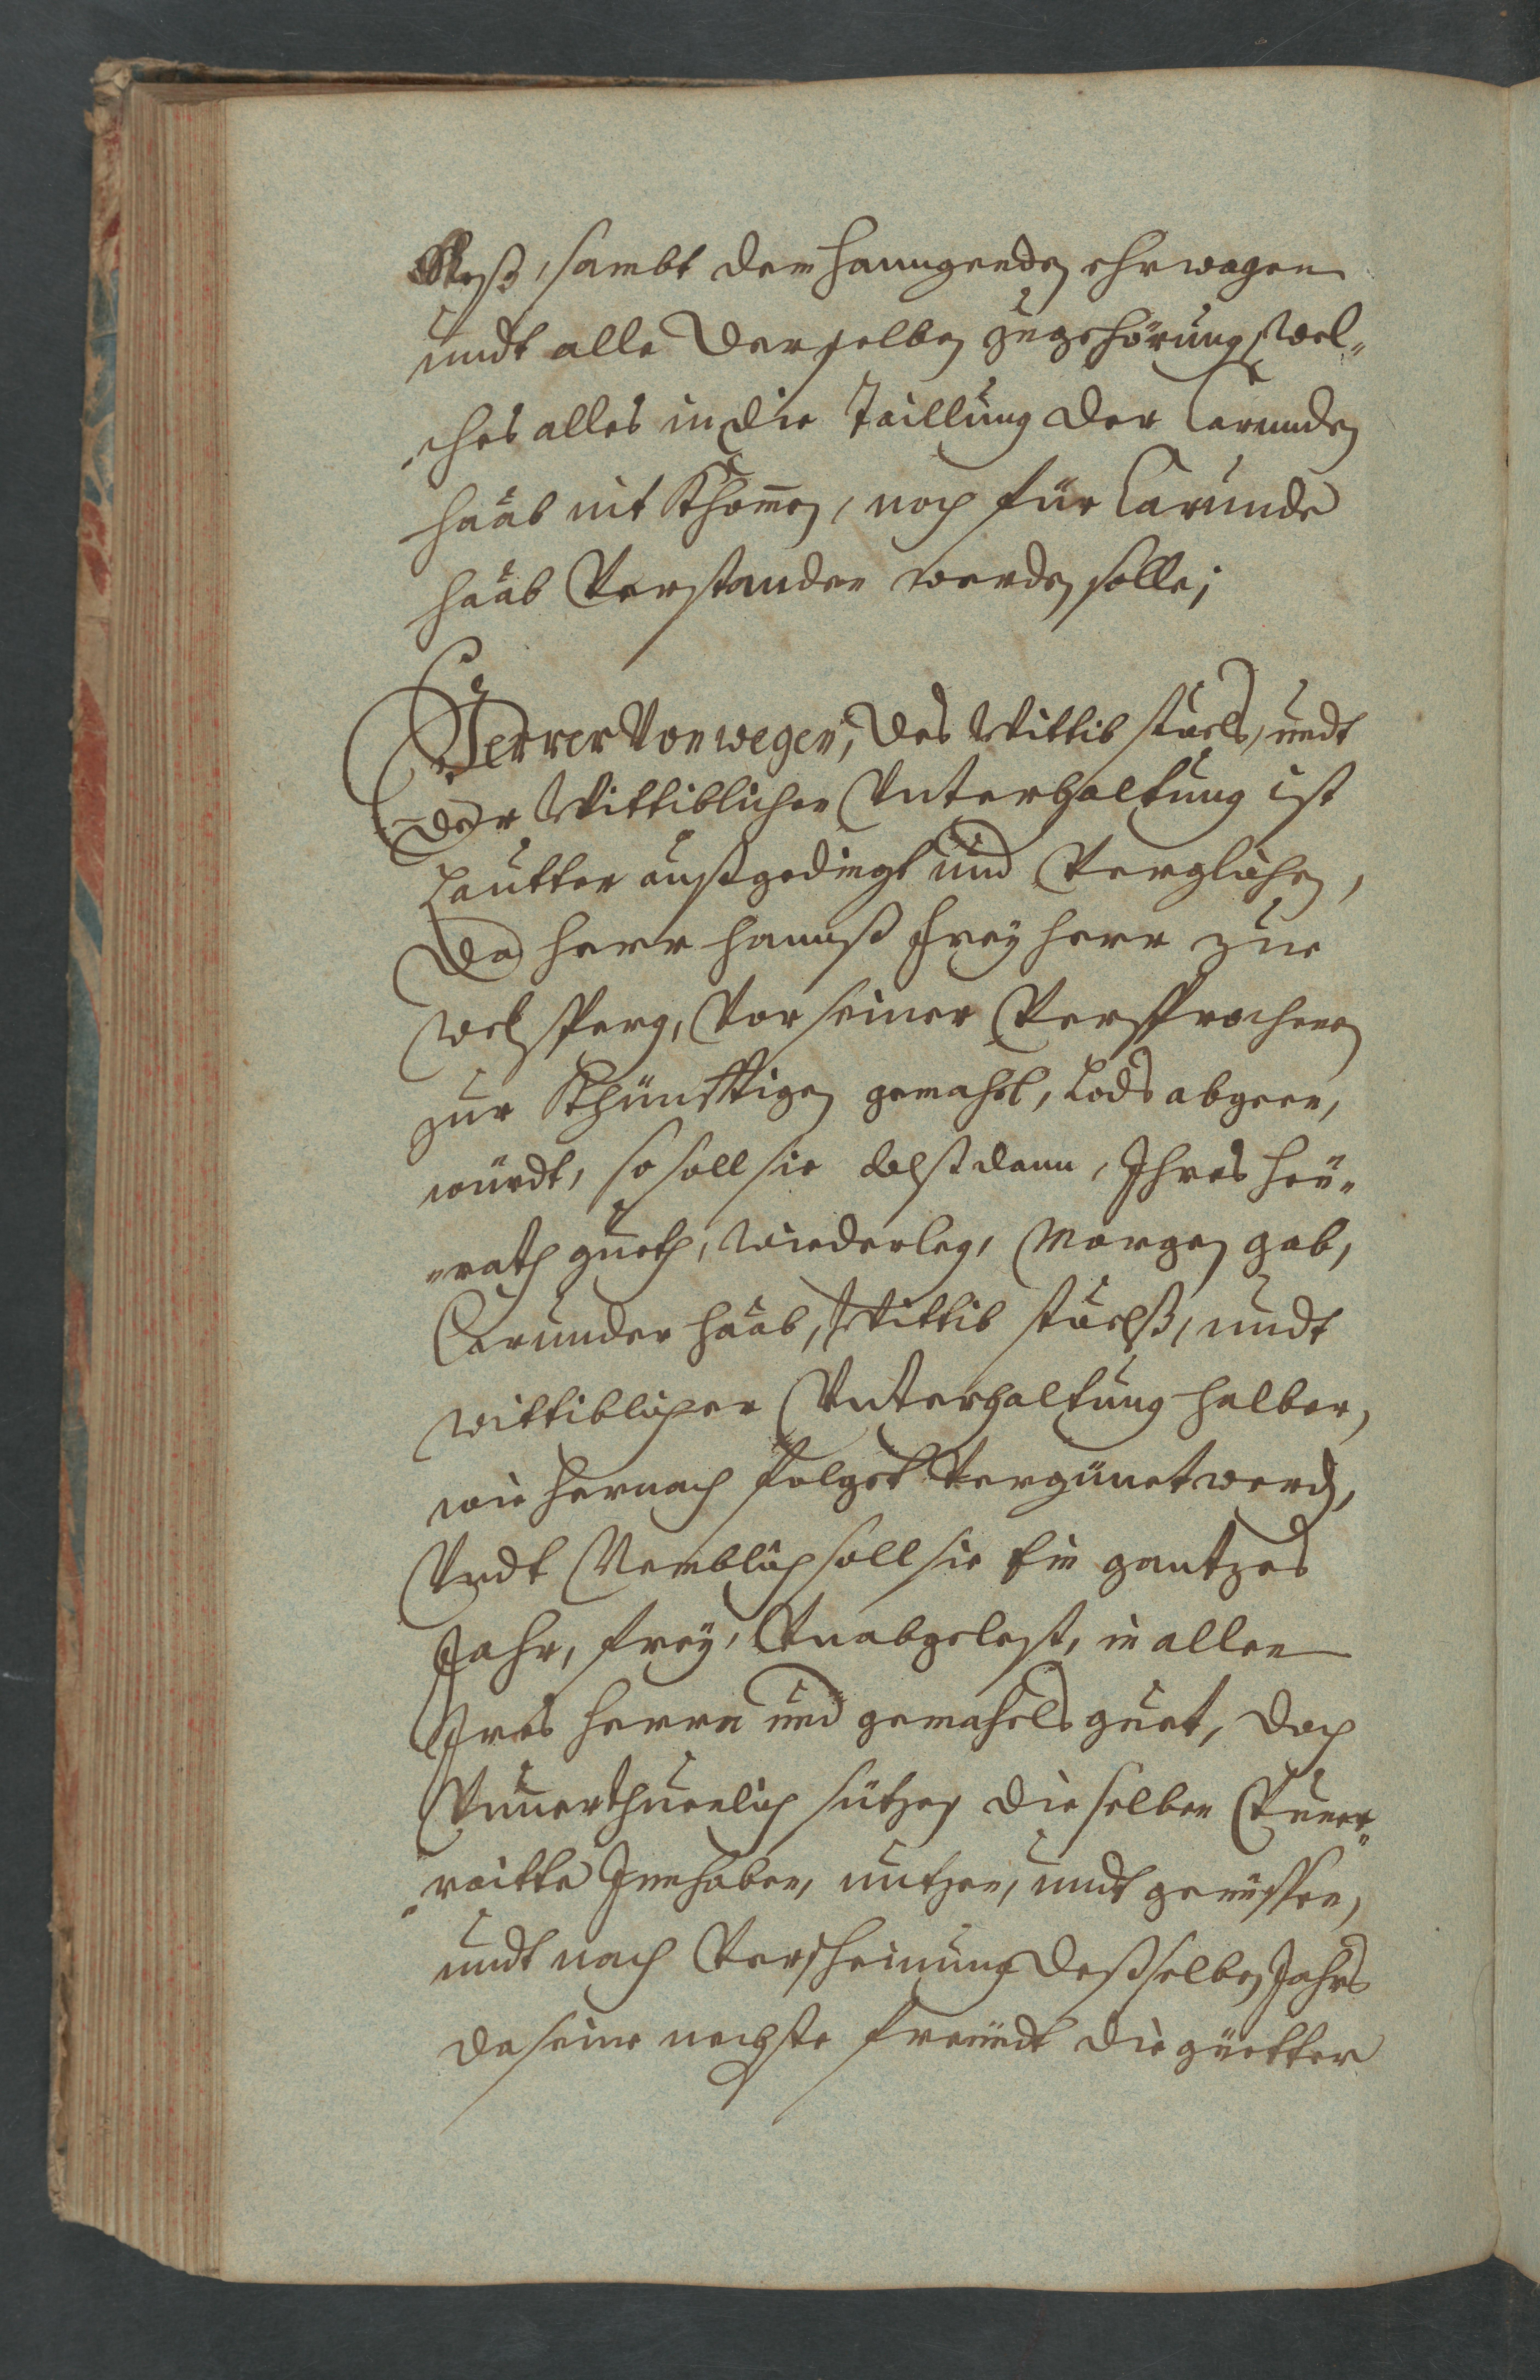 Roß, sambt dem hanngenden ehrwagen
undt alle derselben zugehörung, wel„
„ches alles in die Taillung der Varunden
haab nit Khomen, noch für Varunde
haab Verstanden werden solle;
Ferrer Von wegen, des Wittib stuels, undt
der Wittiblichen Vnterhaltung ist
Lautter außgedingt und Verglichen,
Da herr hannß freyherr zue
Welsperg, Vor seiner Versprochenen
zur Khünfftigen gemahel, Tods abgeen,
würdt, so soll sie alßdann, Ihres heü„
„rath gueth, wiederleg, Morgen gab,
Varunder haab, Wittib stuelß, undt
wittiblicher Vnterhaltung halber,
wie hernach folget Vergünet werd,
Vndt Nemblich soll sie ein gantzes
Jahr, frey, Vnabgelest, in allen
Ires herrn und gemahels guet, doch
Vnuerthuenlich sitzen dieselben Vuner„
„raitte Innhaben, nutzen, undt genüssen,
undt nach Verscheinung deßselben Jahrs
da seine nechste freündt die güetter